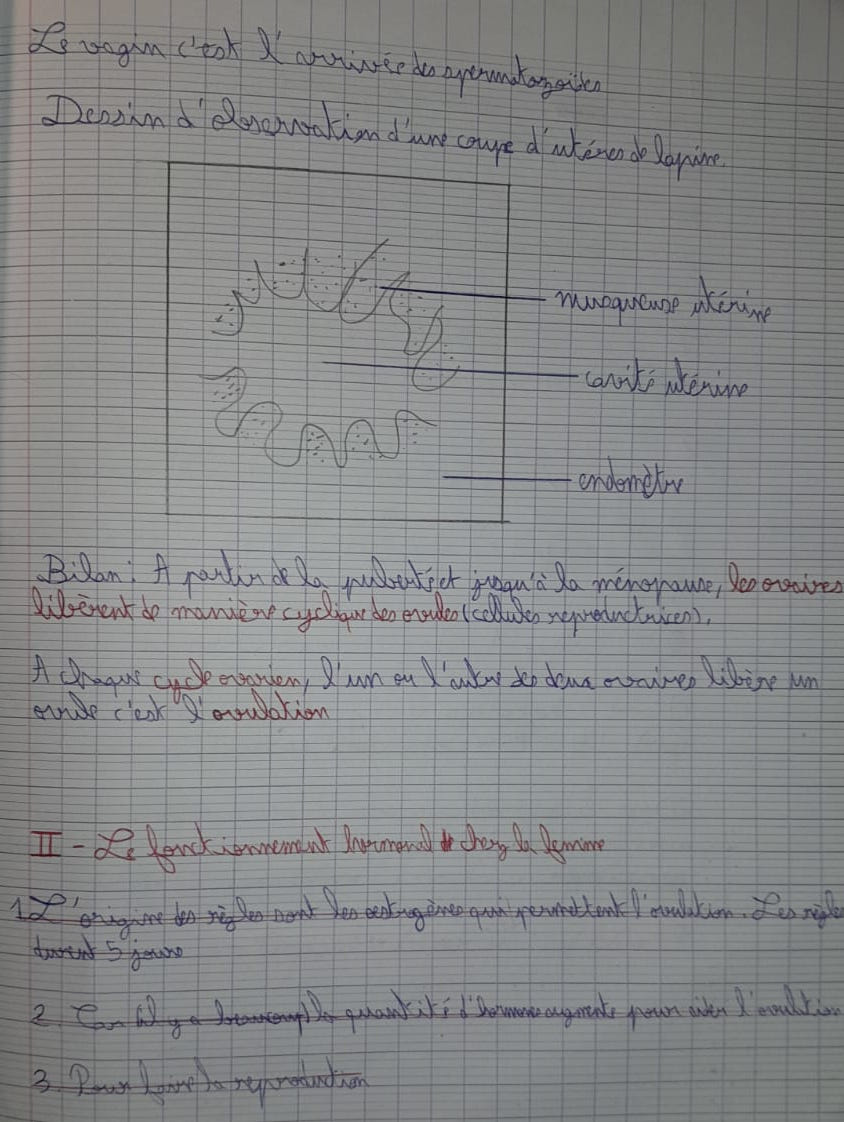 Le vagin c'est l'arrivée des spermatozoïdes
Dessin d'observation d'une coupe d'utérus de lapine.
muqueuse utérine
cavité utérine
endomètre
Bilan : A partir de la puberté et jusqu'à la ménopause, les ovaires
libèrent de manière cyclique des ovules (cellules reproductrices).
A chaque cycle ovarien, l'un ou l'autre des deux ovaires libère un
ovule c'est l'ovulation
II - Le fonctionnement hormonal chez la femme
1 L'origine des règles sont les oestrogènes qui permettent l'ovulation. Les règles
durent 5 jours
2. Car il y a beaucoup la quantité d'hormone augmente pour l'ovulation
3. Pour faire la reproduction